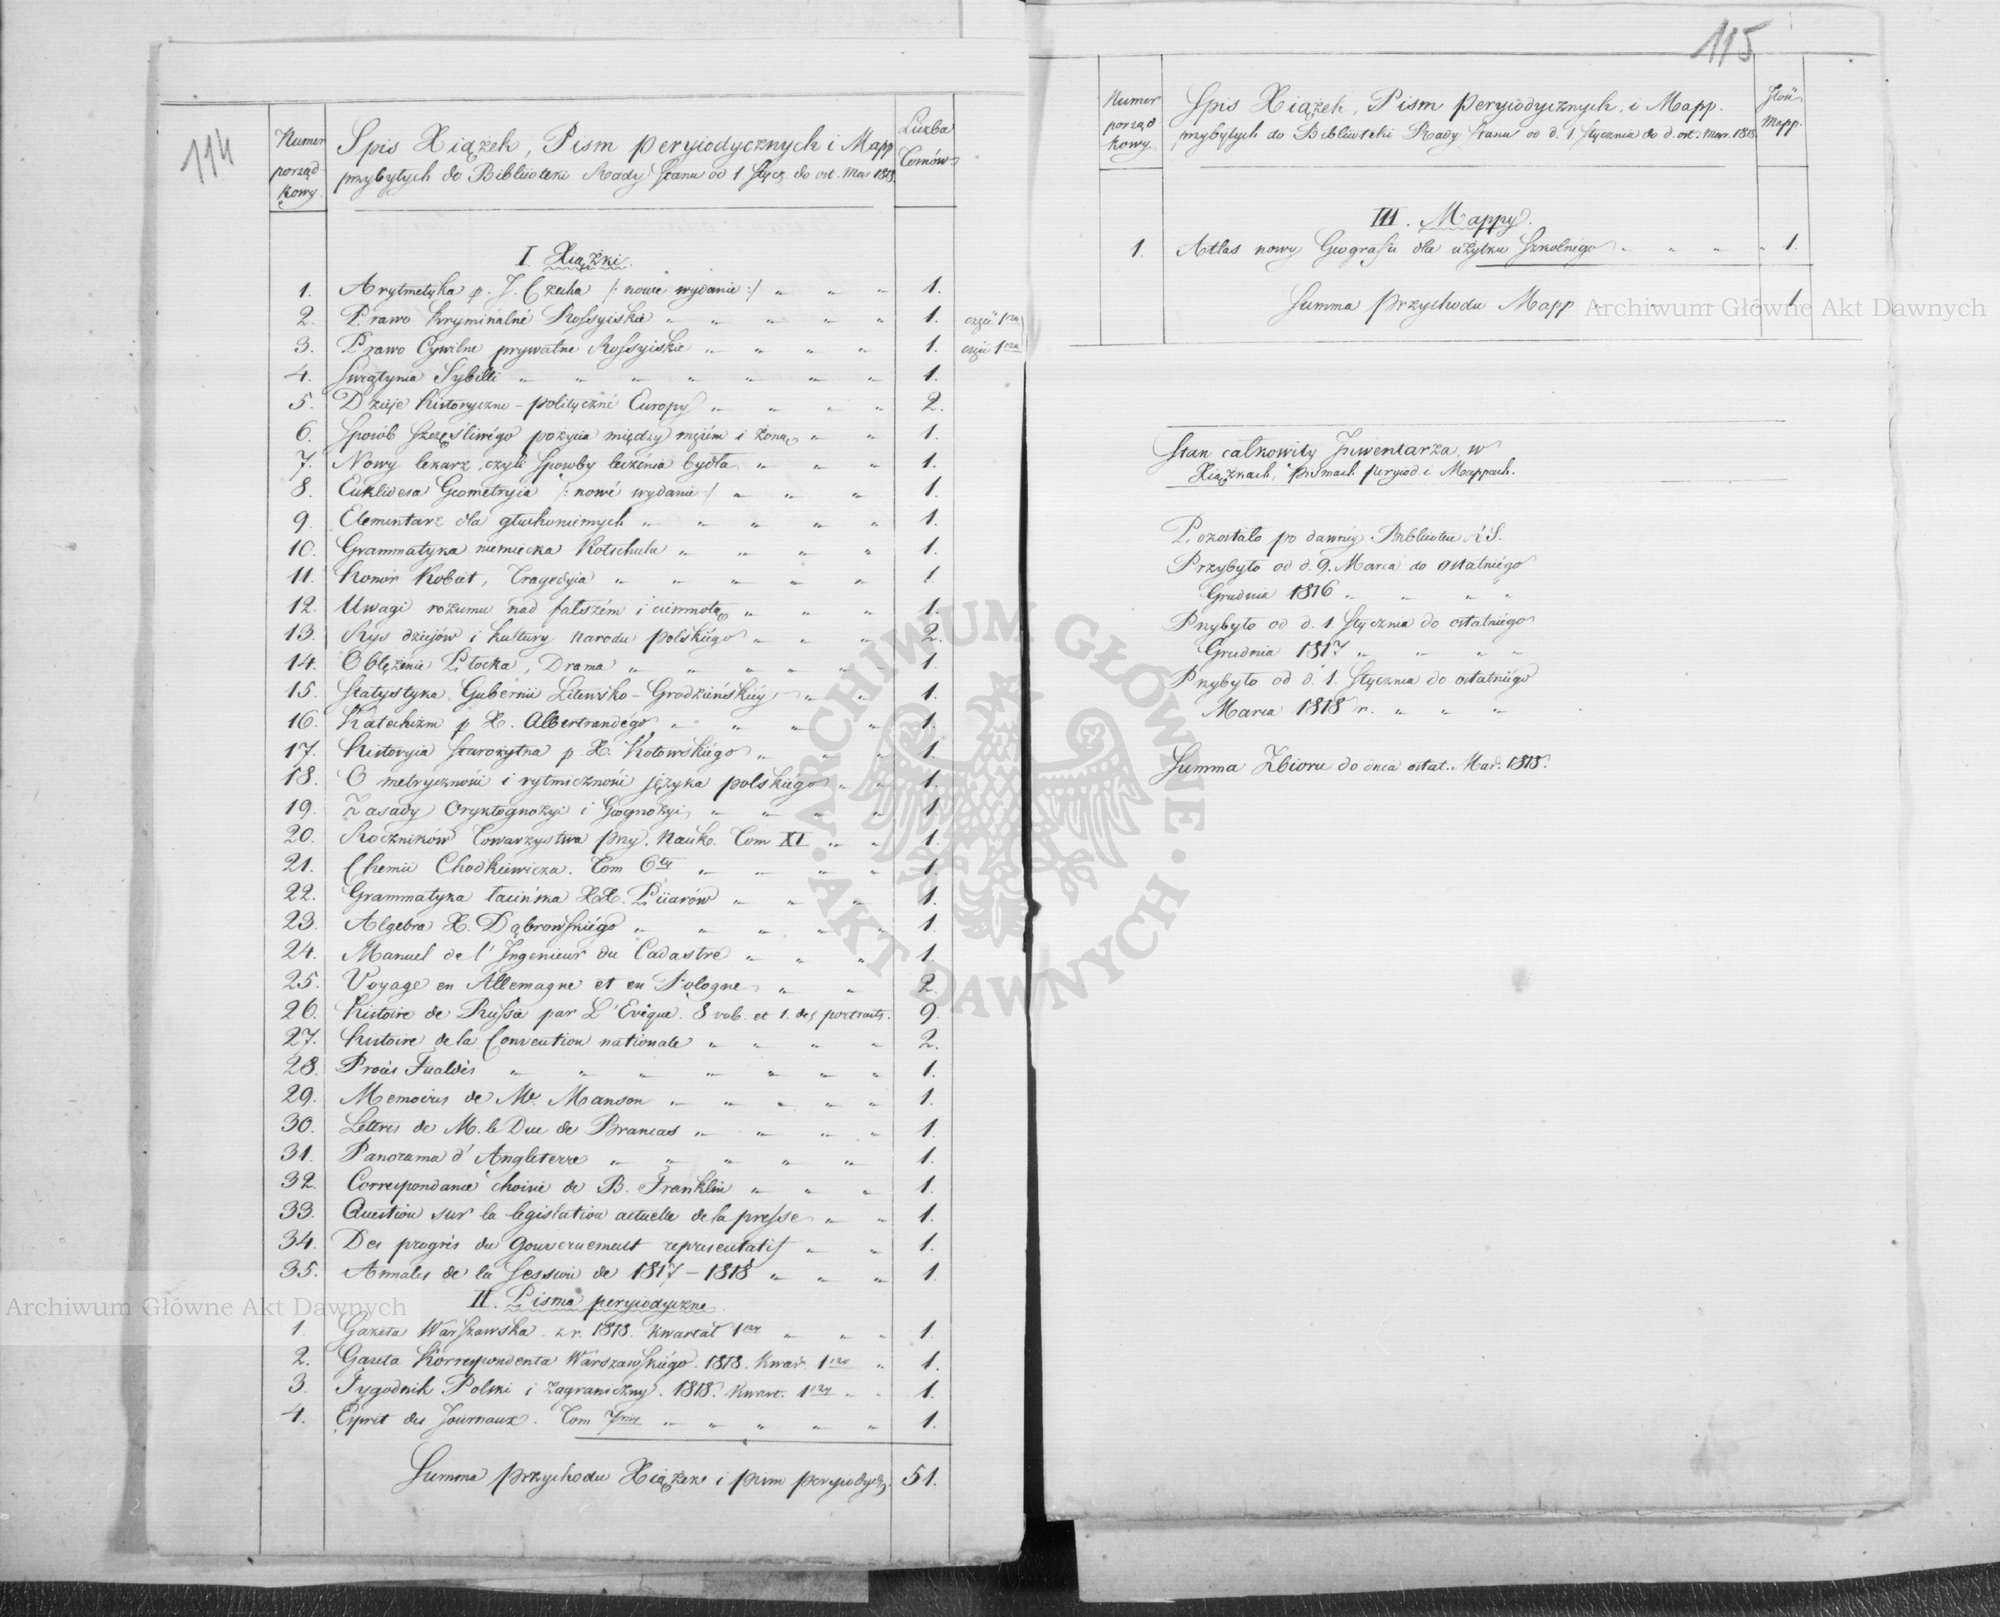 114
Numer porządkowy
Spis Xiążek, Pism peryiodycznych i Mapp
przybyłych do Biblioteki Rady Stanu od 1 Stycz. do ost. Mar 1818.
Liczba Tomów
I. Xiążki.
1. Arytmetyka p. J. Czecha /: nowe wydanie :/ " " " 1.
2. Prawo Kryminalné Rossyiskie " " " " " 1. częśc 1sza
3. Prawo Cywilne prywatne Rossyiskie " " " " 1. częśc 1sza
4. Swiątynia Sybilli " " " " " " " 1.
5. Dzieje historyczno-polityczné Europy " " " " 2.
6. Sposób szczęśliwégo pożycia między mężem i żoną " " 1.
7. Nowy lekarz, czyli sposoby leczénia bydła " " " 1.
8. Euklidesa Geometryia /: nowé wydanie :/ " " " 1.
9. Elementarz dla głuchoniemych " " " " " 1.
10. Grammatyka niemiecka Kotschula " " " " 1.
11. Honor Kobiet, Tragedyia " " " " " 1.
12. Uwagi rozumu nad fałszém i ciemnotą " " " 1.
13. Rys dziejów i kultury narodu polskiégo " " " 2.
14. Oblężenie Płocka, Drama " " " " " " 1.
15. Statystyka Gubernii Litewsko-Grodzieńskiéy " " 1.
16. Katechizm p X. Albertrandégo " " " " 1.
17. Historyia Starożytna p X. Kotowskiégo " " " 1.
18. O metryczności i rytmiczności języka polskiégo " " 1.
19. Zasady Oryktognozyi i Geognozyi " " " " 1.
20. Roczników Towarzystwa Przy. Nauk. Tom XI " " 1.
21. Chemii Chodkiewicza. Tom 6ty " " " " 1.
22. Grammatyka łacińska XX. Piiarów " " " 1.
23. Algebra X. Dąbrowskiégo " " " " " 1.
24. Manuel de l'Ingenieur du Cadastre " " " 1.
25. Voyage en Allemagne et en Pologne " " 2.
26. Histoire de Russie par L'Evêque. 8 vol. et 1. des portraits. 9.
27. Histoire de la Convention nationale " " " " 2.
28. Procès Fualdès " " " " " " " 1.
29. Memoires de Me. Manson " " " " " 1.
30. Lettres de M. le Duc de Brancas " " " " 1.
31. Panorama d'Angleterre " " " " " 1.
32. Correspondance choisie de B. Franklin " " " 1.
33. Question sur la legislation actuelle de la presse " " 1.
34. Des progrès du Gouvernement representatif " " 1.
35. Annales de la Session de 1817-1818 " " " 1.
II. Pisma peryiodyczne
1. Gazeta Warszawska z r. 1818. Kwartał 1szy " " " 1.
2. Gazeta Korrespondenta Warszawskiégo. 1818. Kwar. 1szy " 1.
3. Tygodnik Polski i zagraniczny. 1818. Kwart. 1szy " " 1.
4. Esprit des Journaux. Tom 7my " " " " " 1.
Summa przychodu Xiążek i pism peryiodycz. 51.
115
Numer porządkowy
Spis Xiążek, Pism peryiodycznych, i Mapp.
przybyłych do Biblioteki Rady Stanu od d. 1 Stycznia do d. ost. Mar. 1818
Ilość Mapp.
III. Mappy.
1. Atlas nowy Geografii dla użytku Szkolnégo " " " " 1.
Summa przychodu Mapp 1
Stan całkowity Inwentarza, w
Xiążkach, Pismach peryiod. i Mappach.
Pozostało po dawnéy Bibliotece R.S.
Przybyło od d. 9. Marca do ostatniégo
Grudnia 1816 " " " "
Przybyło od d. 1. Stycznia do ostatniégo
Grudnia 1817 " " " "
Przybyło od d. 1. Stycznia do ostatniégo
Marca 1818 r. " " "
Summa Zbioru do dnia ostat. Mar. 1818.
Archiwum Główne Akt Dawnych
Archiwum Główne Akt Dawnych
ARCHIWUM GŁÓWNE · AKT DAWNYCH ·